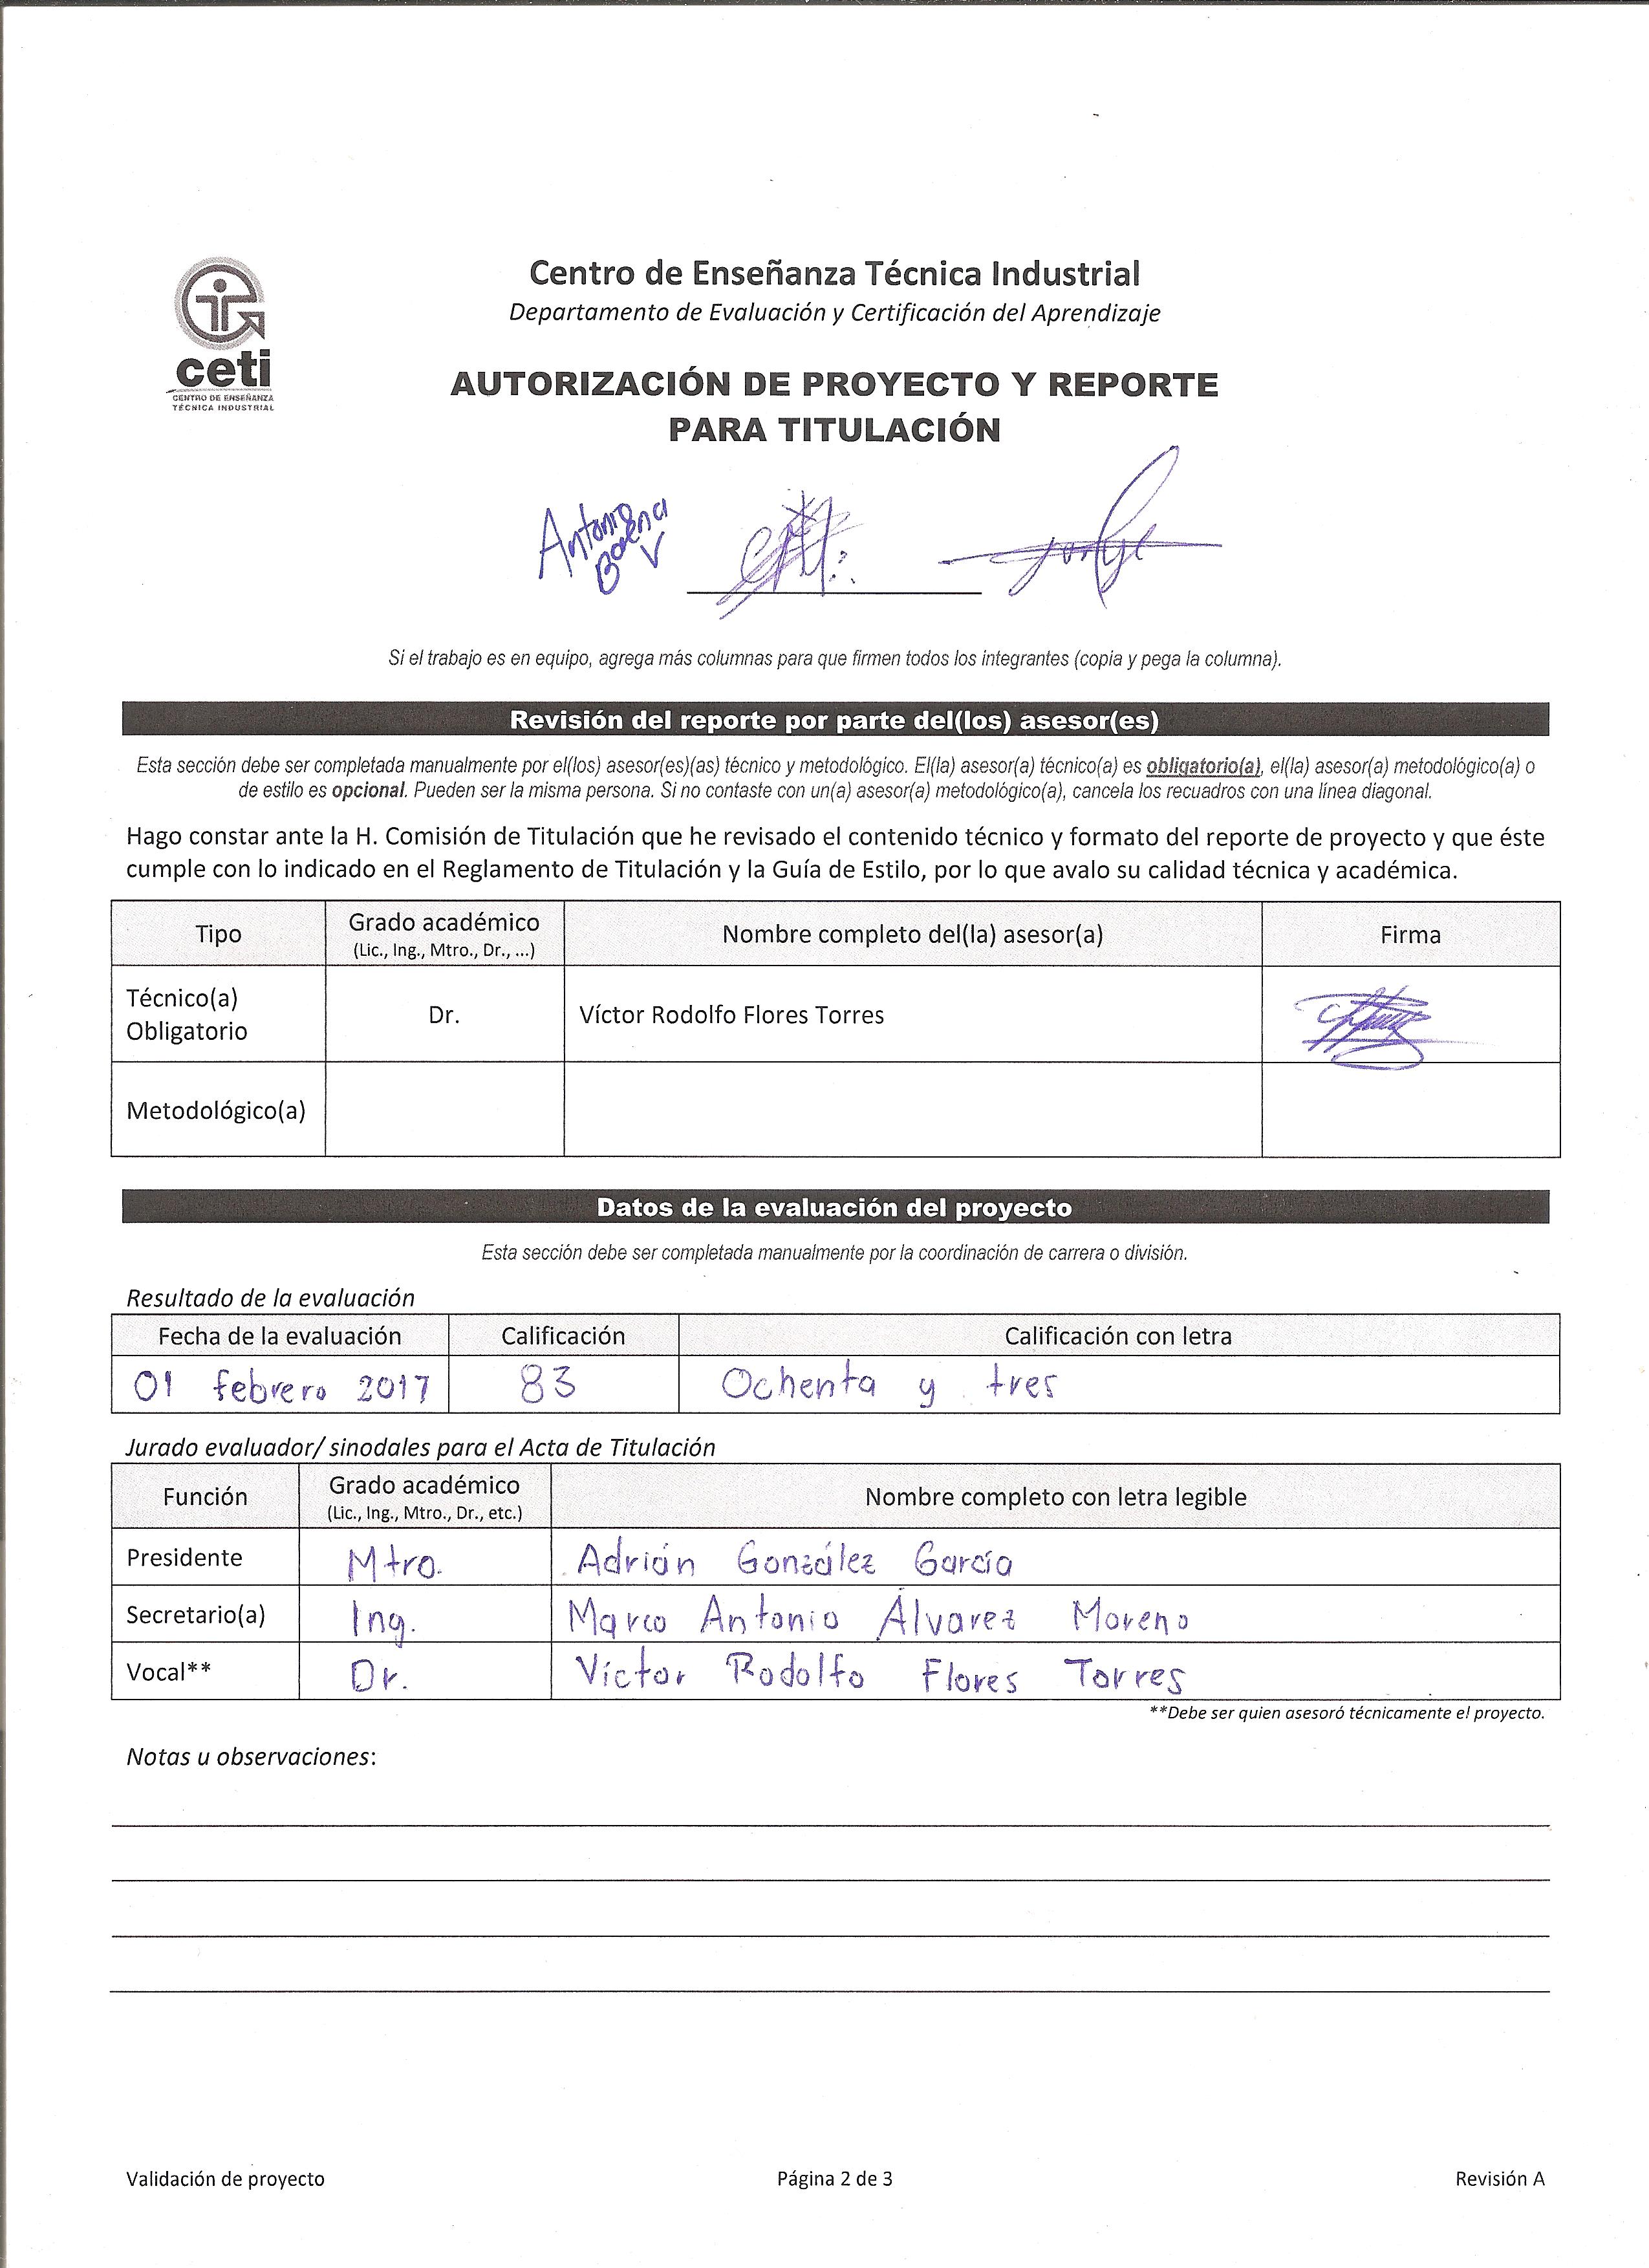 Centro de Enseñanza Técnica Industrial
Departamento de Evaluación y Certificación del Aprendizaje
ceti
CENTRO DE ENSEÑANZA
TÉCNICA INDUSTRIAL
AUTORIZACIÓN DE PROYECTO Y REPORTE
PARA TITULACIÓN
Antonio
V
Jorge
Si el trabajo es en equipo, agrega más columnas para que firmen todos los integrantes (copia y pega la columna).
Revisión del reporte por parte del(los) asesor(es)
Esta sección debe ser completada manualmente por el(los) asesor(es)(as) técnico y metodológico. El(la) asesor(a) técnico(a) es obligatorio(a), el(la) asesor(a) metodológico(a) o
de estilo es opcional. Pueden ser la misma persona. Si no contaste con un(a) asesor(a) metodológico(a), cancela los recuadros con una línea diagonal.
Hago constar ante la H. Comisión de Titulación que he revisado el contenido técnico y formato del reporte de proyecto y que éste
cumple con lo indicado en el Reglamento de Titulación y la Guía de Estilo, por lo que avalo su calidad técnica y académica.
Tipo Grado académico (Lic., Ing., Mtro., Dr., ...) Nombre completo del(la) asesor(a) Firma
Técnico(a) Obligatorio Dr. Víctor Rodolfo Flores Torres
Metodológico(a)
Datos de la evaluación del proyecto
Esta sección debe ser completada manualmente por la coordinación de carrera o división.
Resultado de la evaluación
Fecha de la evaluación Calificación Calificación con letra
01 febrero 2017 83 Ochenta y tres
Jurado evaluador/ sinodales para el Acta de Titulación
Función Grado académico (Lic., Ing., Mtro., Dr., etc.) Nombre completo con letra legible
Presidente Mtro. Adrián González García
Secretario(a) Ing. Marco Antonio Álvarez Moreno
Vocal** Dr. Víctor Rodolfo Flores Torres
**Debe ser quien asesoró técnicamente el proyecto.
Notas u observaciones:
Validación de proyecto Página 2 de 3 Revisión A